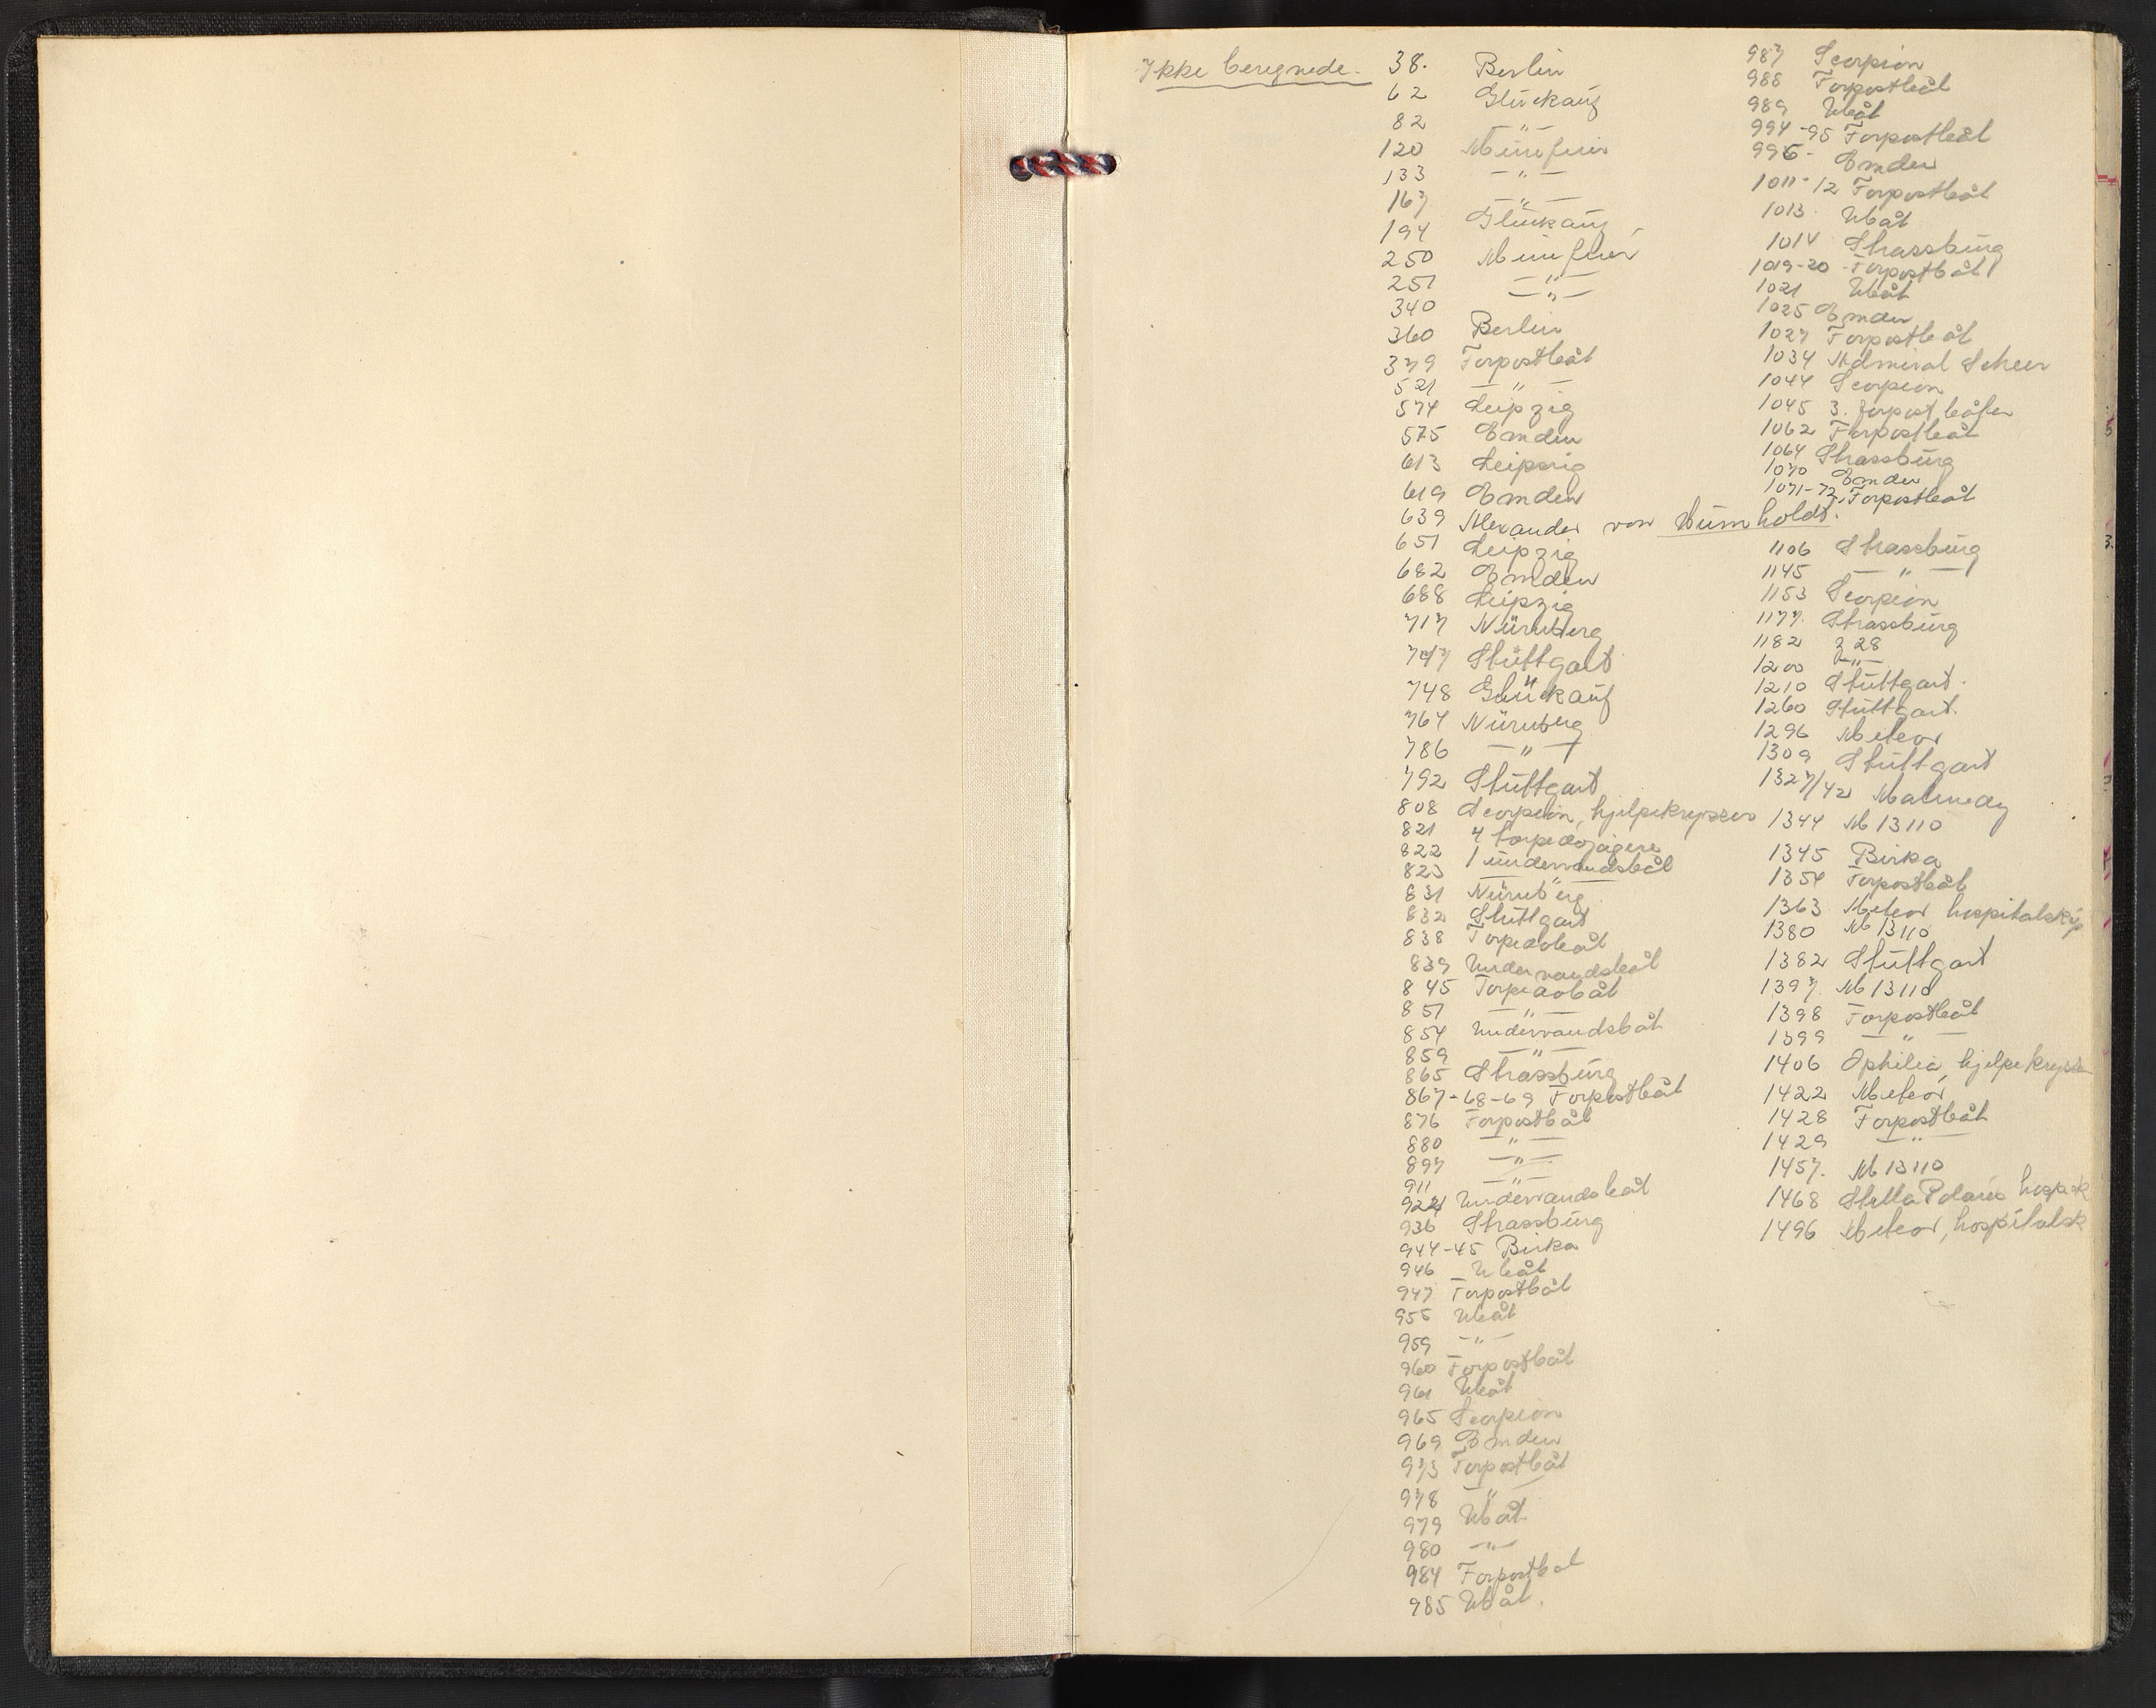 Ikke beregnede.
38. Berlin
62 Glückauf
82 —"—
120
133 —"—
167. —"—
194 Glückauf
250
251 —"—
340 —"—
360 Berlin
379 Forpostbåt
521 —"—
574 Leipzig
575 Emden
613 Leipzig
619 Emden
639 Alexander von Humholdt.
651 Leipzig
682 Emden
688 Leipzig
717 Nürnberg
747 Stüttgart
748 Glückauf
764 Nürnberg
786 —"—
792 Stüttgart
808 Scorpion, hjelpekrysser
821 4 torpedojagere
822 1 undervandsbåt
823 —"—
831 Nürnberg
832 Stüttgart
838 Torpedobåt
839 Undervandsbåt
845 Torpedobåt
851 —"—
854 Undervandsbåt
859 —"—
865 Strassbürg
867-68-69 Forpostbåt
876 Forpostbåt
880 —"—
897 —"—
911 —"—
924 Undervandsbåt
936 Strassbürg
944-45 Birka
946 Ubåt
947 Forpostbåt
955 Ubåt
959 —"—
960 Forpostbåt
961 Ubåt
965 Scorpion
969 Emden
973 Forpostbåt
978 —"—
979 Ubåt
980 —"—
984 Forpostbåt
985 Ubåt.
987 Scorpion
988 Forpostbåt
989 Ubåt
994-95 Forpostbåt
996- Emden
1011-12 Forpostbåt
1013. Ubåt
1014 Strassbürg
1019-20 -Forpostbåt
1021 Ubåt
1025 Emden
1027 Forpostbåt
1034 Admiral Scheer
1044 Scorpion
1045 3. forpostbåter
1062 Forpostbåt
1064 Strassbürg
1070 Emden
1071-72. Forpostbåt
1106 Strassbürg
1145 —"—
1153 Scorpion
1177. Strassbürg
1182 Z 28
1200 —"—
1210 Stüttgart.
1260 Stüttgart.
1296 Meteor
1309 Stüttgart
1327/42 Malmedy
1344 M 13110
1345 Birka
1354 Forpostbåt
1363 Meteor hospitalskip
1380 M 13110
1382 Stüttgart
1397. M 13110
1398 Forpostbåt
1399 —"—
1406 Ophilia, hjelpekrysser
1422 Meteor
1428 Forpostbåt
1429 —"—
1457. M 13110
1468 Stella Polaris hospsk
1496 Meteor, hospitalsk